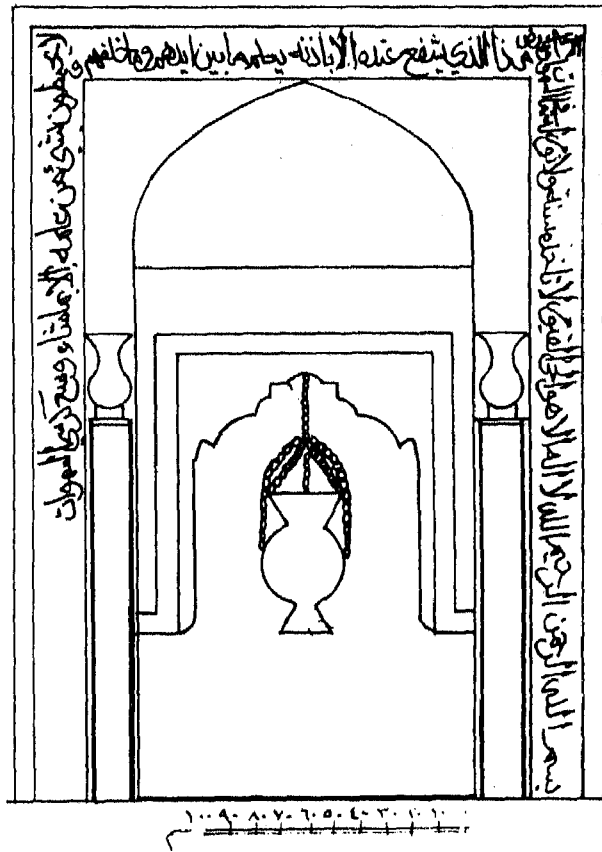 بسم الله الرحمن الرحيم الله لا اله الا هو الحي القيوم لا تاخذه سنة ولا نوم
ذا الذي يشفع عنده الا باذنه يعلم ما بين ايديهم وما خلفهم و
لا يحيطون بشيء من علمه الا بما شاء وسع كرسيه السموات
١٠٠ ٩٠ ٨٠ ٧٠ ٦٠ ٥٠ ٤٠ ٣٠ ٢٠ ١٠ ٠
م